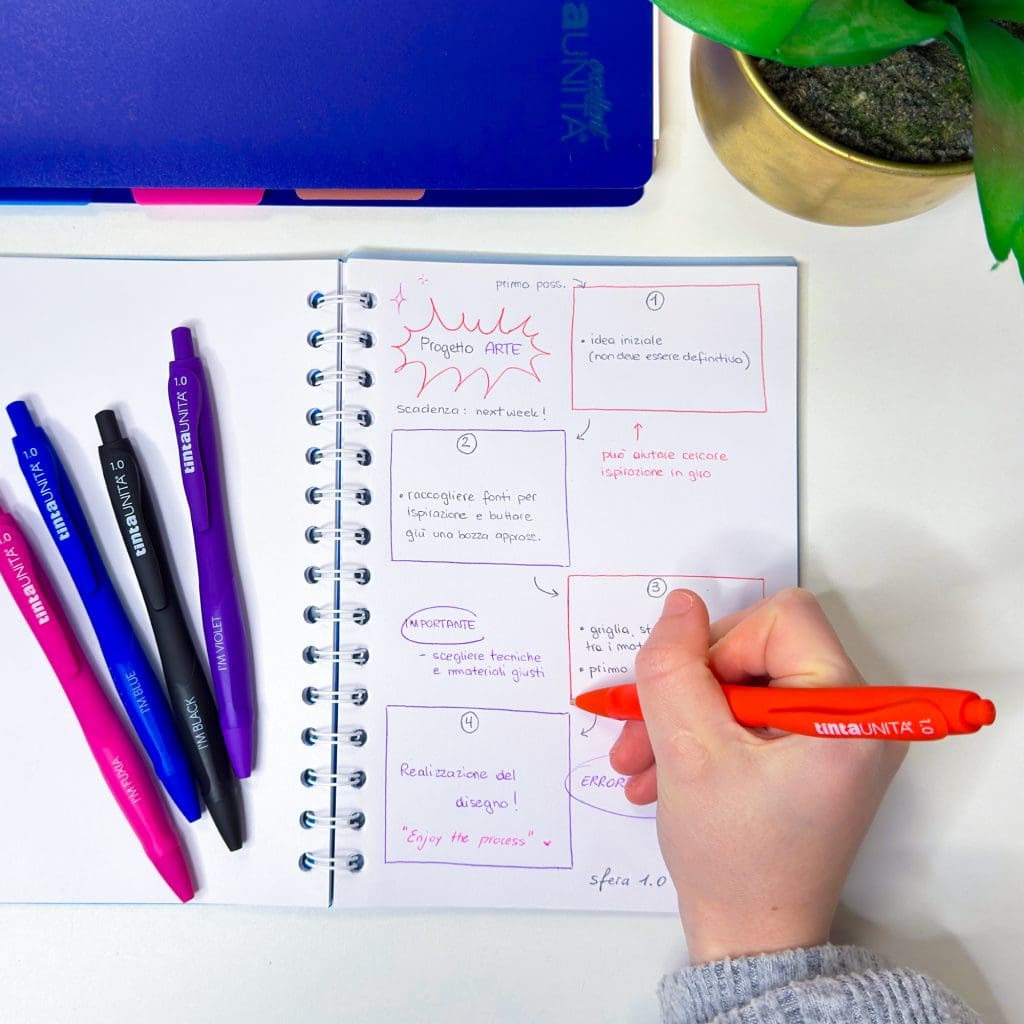 tintaUNITÀ
excellent
primo pass.
1
Progetto ARTE
• idea iniziale
(non deve essere definitivo)
scadenza: next week!
2
può aiutare cercare
ispirazione in giro
• raccogliere fonti per
ispirazione e buttare
giù una bozza appross.
3
IMPORTANTE
- scegliere tecniche
e mmateriali giusti
• griglia,
tra i
• primo
4
Realizzazione del
disegno!
"Enjoy the process"
sfera 1.0
1.0
tintaUNITÀ
I'M FUXIA
1.0
tintaUNITÀ
I'M BLUE
1.0
tintaUNITÀ
I'M BLACK
1.0
tintaUNITÀ
I'M VIOLET
tintaUNITÀ 1.0